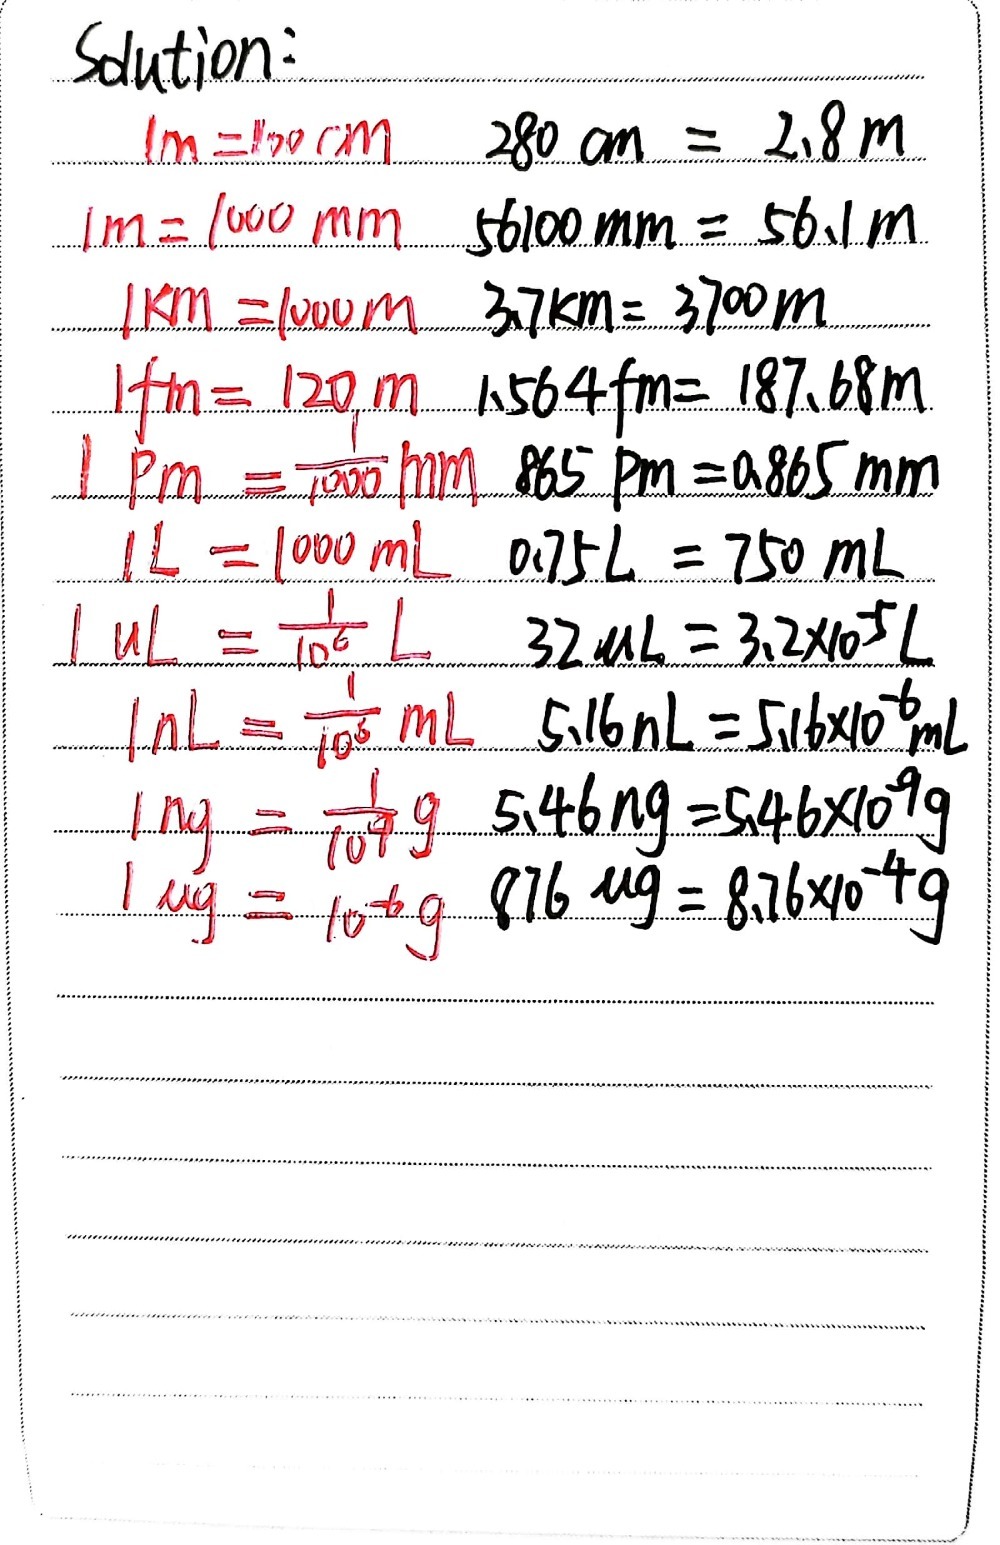 Solution:
1m = 100 cm 280 cm = 2.8 m
1m = 1000 mm 56100 mm = 56.1 m
1KM = 1000 m 3.7KM = 3700 m
1fm = 120 m 1.564 fm = 187.68 m
1 Pm = 1/1000 mm 865 Pm = 0.865 mm
1L = 1000 mL 0.75L = 750 mL
1 uL = 1/10⁶ L 32 uL = 3.2×10⁻⁵ L
1nL = 1/10⁶ mL 5.16 nL = 5.16×10⁻⁶ mL
1 ng = 1/10⁹ g 5.46 ng = 5.46×10⁻⁹ g
1 ug = 10⁻⁶ g 876 ug = 8.76×10⁻⁴ g